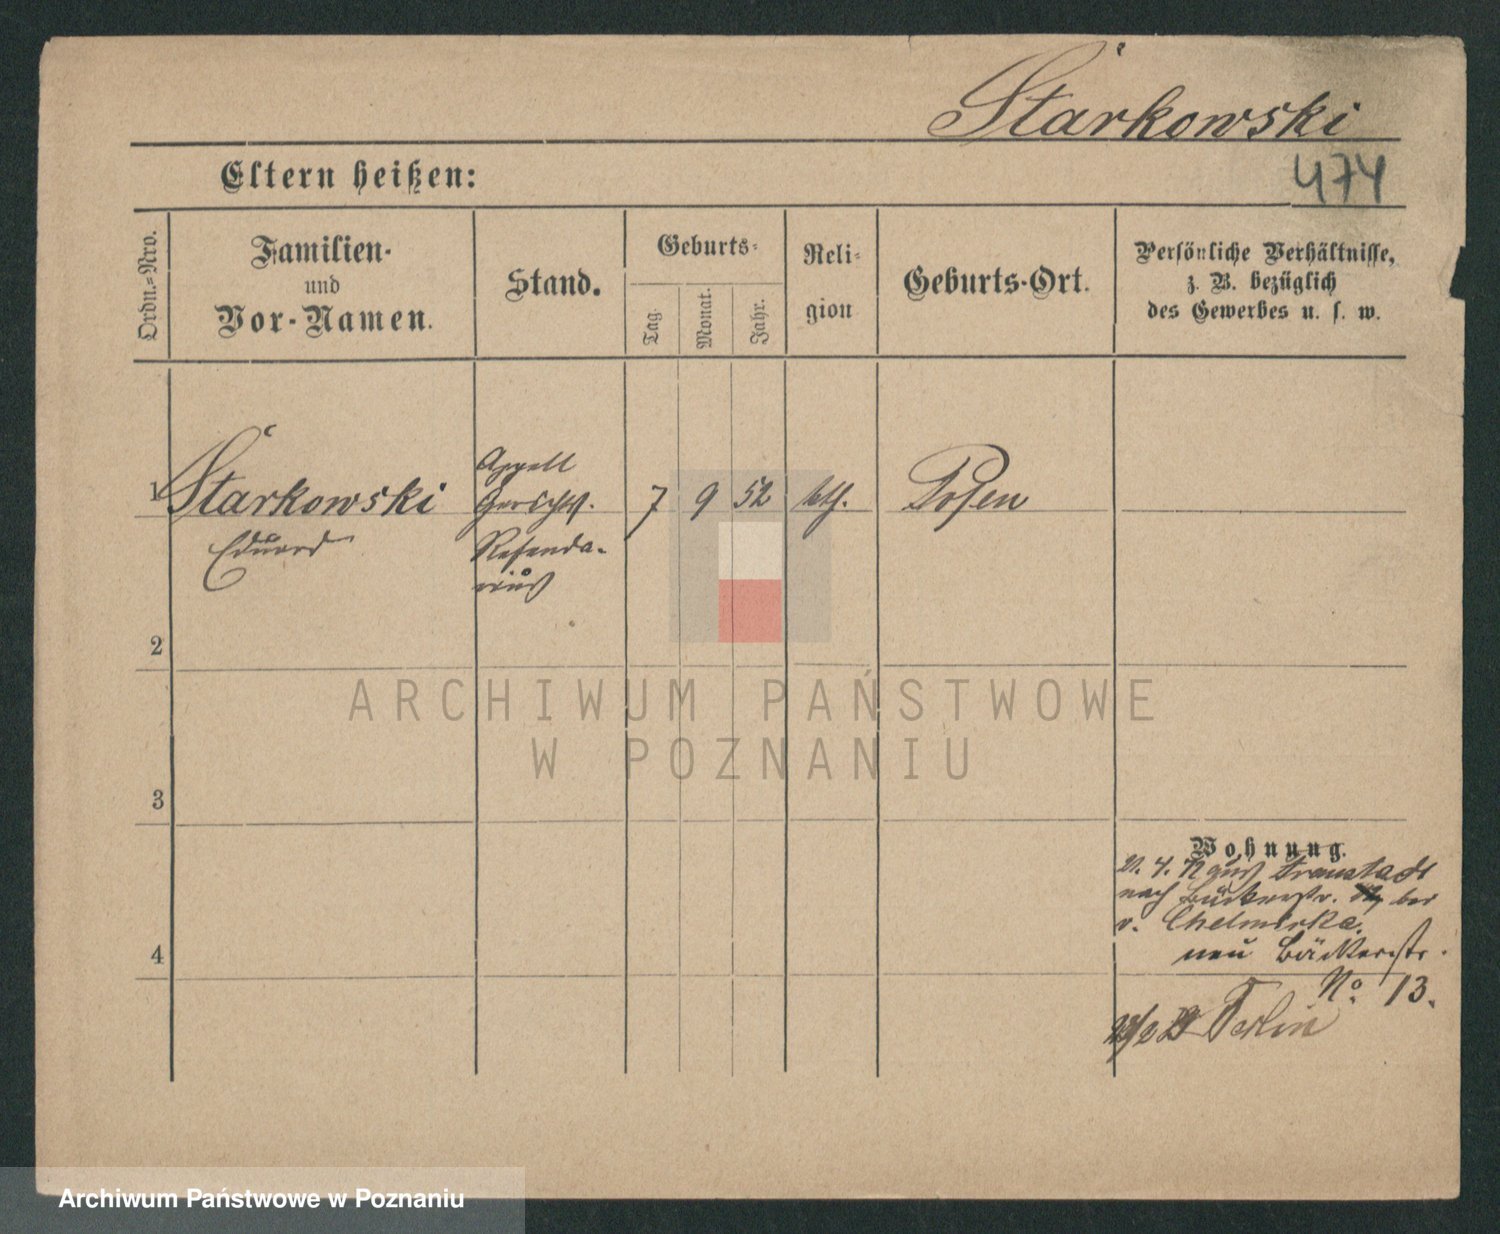 Starkowski
474
Eltern heißen:
Ordn.-Nro.
Familien-
und
Vor-Namen.
Stand.
Geburts-
Tag.
Monat.
Jahr.
Reli-
gion
Geburts-Ort.
Persönliche Verhältnisse,
z. B. bezüglich
des Gewerbes u. s. w.
1 Starkowski
Eduard
Appell
Gerichts.
Referenda-
rius
7 9 52 kth. Posen
2
3
4
Wohnung.
4. aus Fraustadt
nach Bäckerstr. bei
v. Chelmicka.
neu Bäckerstr.
No. 13.
Berlin
ARCHIWUM PAŃSTWOWE
W POZNANIU
Archiwum Państwowe w Poznaniu